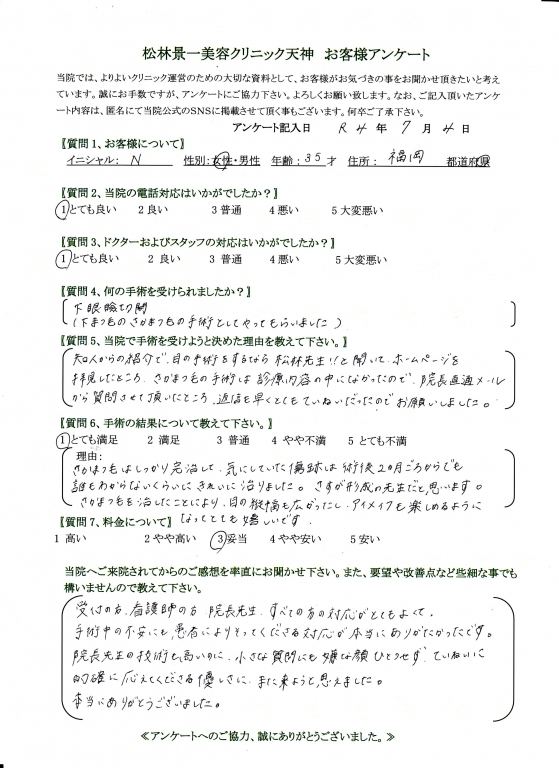 松林景一美容クリニック天神 お客様アンケート
当院では、よりよいクリニック運営のための大切な資料として、お客様がお気づきの事をお聞かせ頂きたいと考え
ています。誠にお手数ですが、アンケートにご協力下さい。よろしくお願い致します。なお、ご記入頂いたアンケ
ート内容は、匿名にて当院公式のSNSに掲載させて頂く事もございます。何卒ご了承下さい。
アンケート記入日 R4年 7月4日
〖質問1、お客様について〗
イニシャル: N 性別:女性・男性 年齢:35才 住所: 福岡 都道府県
〖質問2、当院の電話対応はいかがでしたか?〗
1とても良い 2良い 3普通 4悪い 5大変悪い
〖質問3、ドクターおよびスタッフの対応はいかがでしたか?〗
1とても良い 2良い 3普通 4悪い 5大変悪い
〖質問4、何の手術を受けられましたか?〗
下眼瞼切開
(下まつ毛のさかまつ毛の手術としてやってもらいました)
〖質問5、当院で手術を受けようと決めた理由を教えて下さい。〗
知人からの紹介で、目の手術をするなら松林先生!!と聞いて、ホームページを
拝見したところ、さかまつ毛の手術は診療内容の中になかったので、院長直通メール
から質問させて頂いたところ、返信も早くとてもていねいだったのでお願いしました。
〖質問6、手術の結果について教えて下さい。〗
1とても満足 2満足 3普通 4やや不満 5とても不満
理由:
さかまつ毛はしっかり完治して、気にしていた傷跡は術後2ヵ月ごろからでも
誰もわからないくらいにきれいに治りました。さすが形成の先生だと思います。
さかまつ毛を治したことにより、目の縦幅も広がったし、アイメイクも楽しめるように
なってとても嬉しいです。
〖質問7、料金について〗
1高い 2やや高い 3妥当 4やや安い 5安い
当院へご来院されてからのご感想を率直にお聞かせ下さい。また、要望や改善点など些細な事でも
構いませんので教えて下さい。
受付の方、看護師の方、院長先生、すべての方の対応がとてもよくて、
手術中の不安にも、患者によりそってくださる対応が本当にありがたかったです。
院長先生の技術も高いのに、小さな質問にも嫌な顔ひとつせず、ていねいに
的確に応えてくださる優しさに、また来ようと思えました。
本当にありがとうございました。
≪アンケートへのご協力、誠にありがとうございました。≫